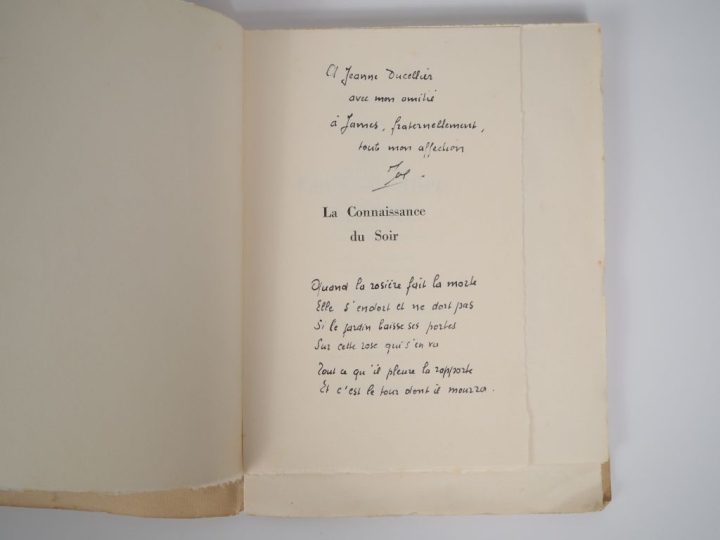 A Jeanne Ducellier
avec mon amitié
à James, fraternellement,
toute mon affection
La Connaissance
du Soir
Quand la rosière fait la morte
Elle s'endort et ne dort pas
Si le jardin baisse ses portes
Sur cette rose qui s'en va
Tout ce qu'il pleure la rapporte
Et c'est le tour dont il mourra.